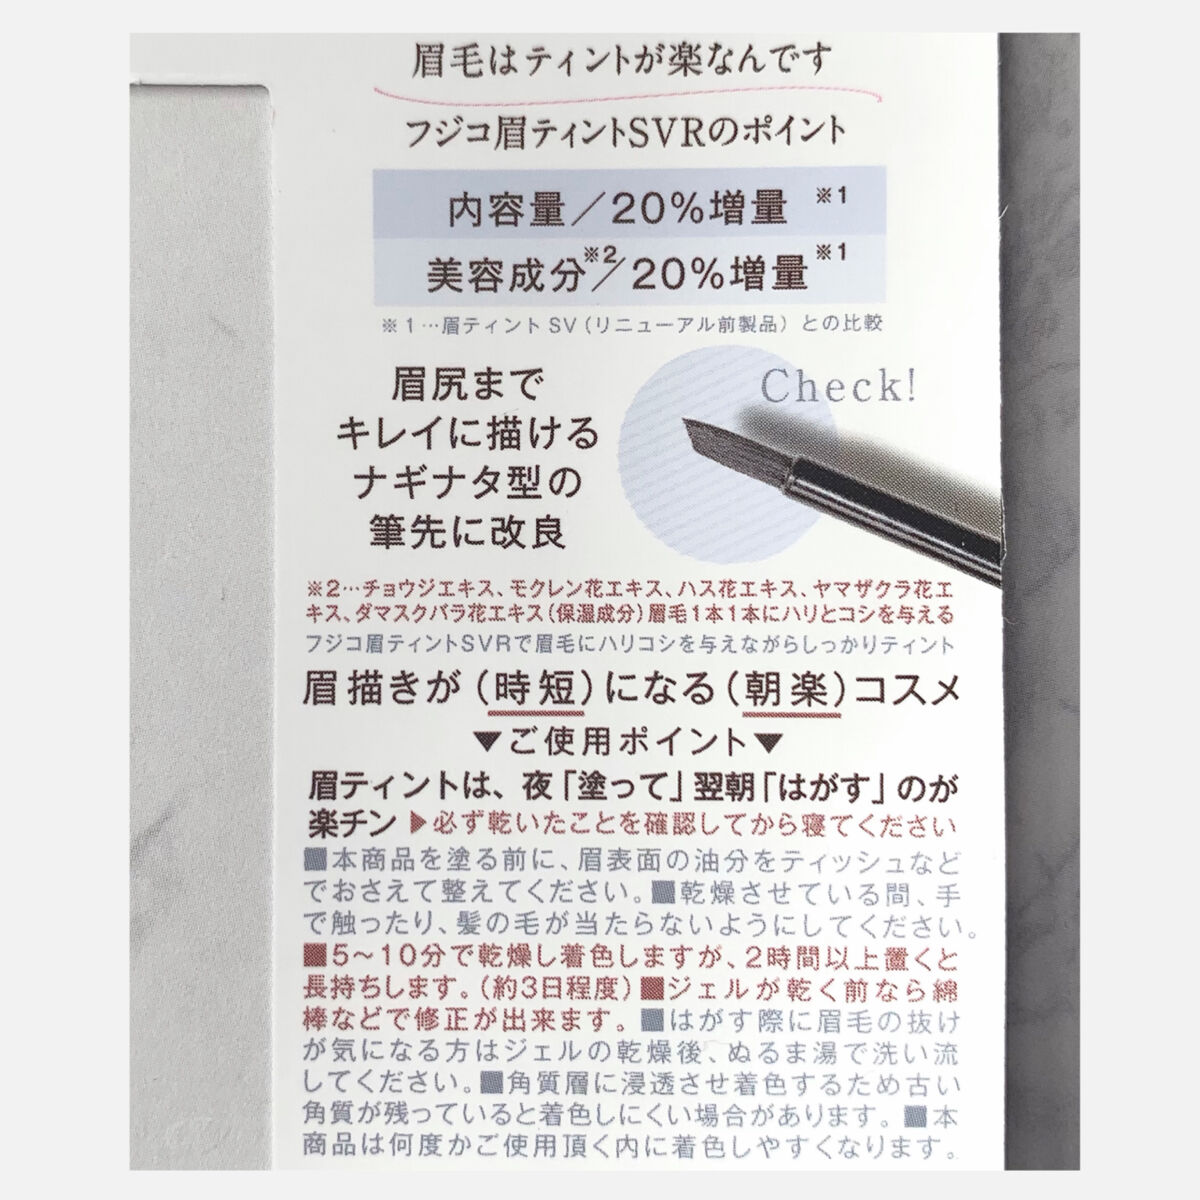 眉毛はティントが楽なんです
フジコ眉ティントSVRのポイント
内容量／20%増量 ※1
美容成分※2／20%増量※1
※1…眉ティントSV（リニューアル前製品）との比較
眉尻まで
キレイに描ける
ナギナタ型の
筆先に改良
Check!
※2…チョウジエキス、モクレン花エキス、ハス花エキス、ヤマザクラ花エ
キス、ダマスクバラ花エキス（保湿成分）眉毛1本1本にハリとコシを与える
フジコ眉ティントSVRで眉毛にハリコシを与えながらしっかりティント
眉描きが（時短）になる（朝楽）コスメ
▼ご使用ポイント▼
眉ティントは、夜「塗って」翌朝「はがす」のが
楽チン▶必ず乾いたことを確認してから寝てください
■本商品を塗る前に、眉表面の油分をティッシュなど
でおさえて整えてください。■乾燥させている間、手
で触ったり、髪の毛が当たらないようにしてください。
■5〜10分で乾燥し着色しますが、2時間以上置くと
長持ちします。（約3日程度）■ジェルが乾く前なら綿
棒などで修正が出来ます。■はがす際に眉毛の抜け
が気になる方はジェルの乾燥後、ぬるま湯で洗い流
してください。■角質層に浸透させ着色するため古い
角質が残っていると着色しにくい場合があります。■本
商品は何度かご使用頂く内に着色しやすくなります。